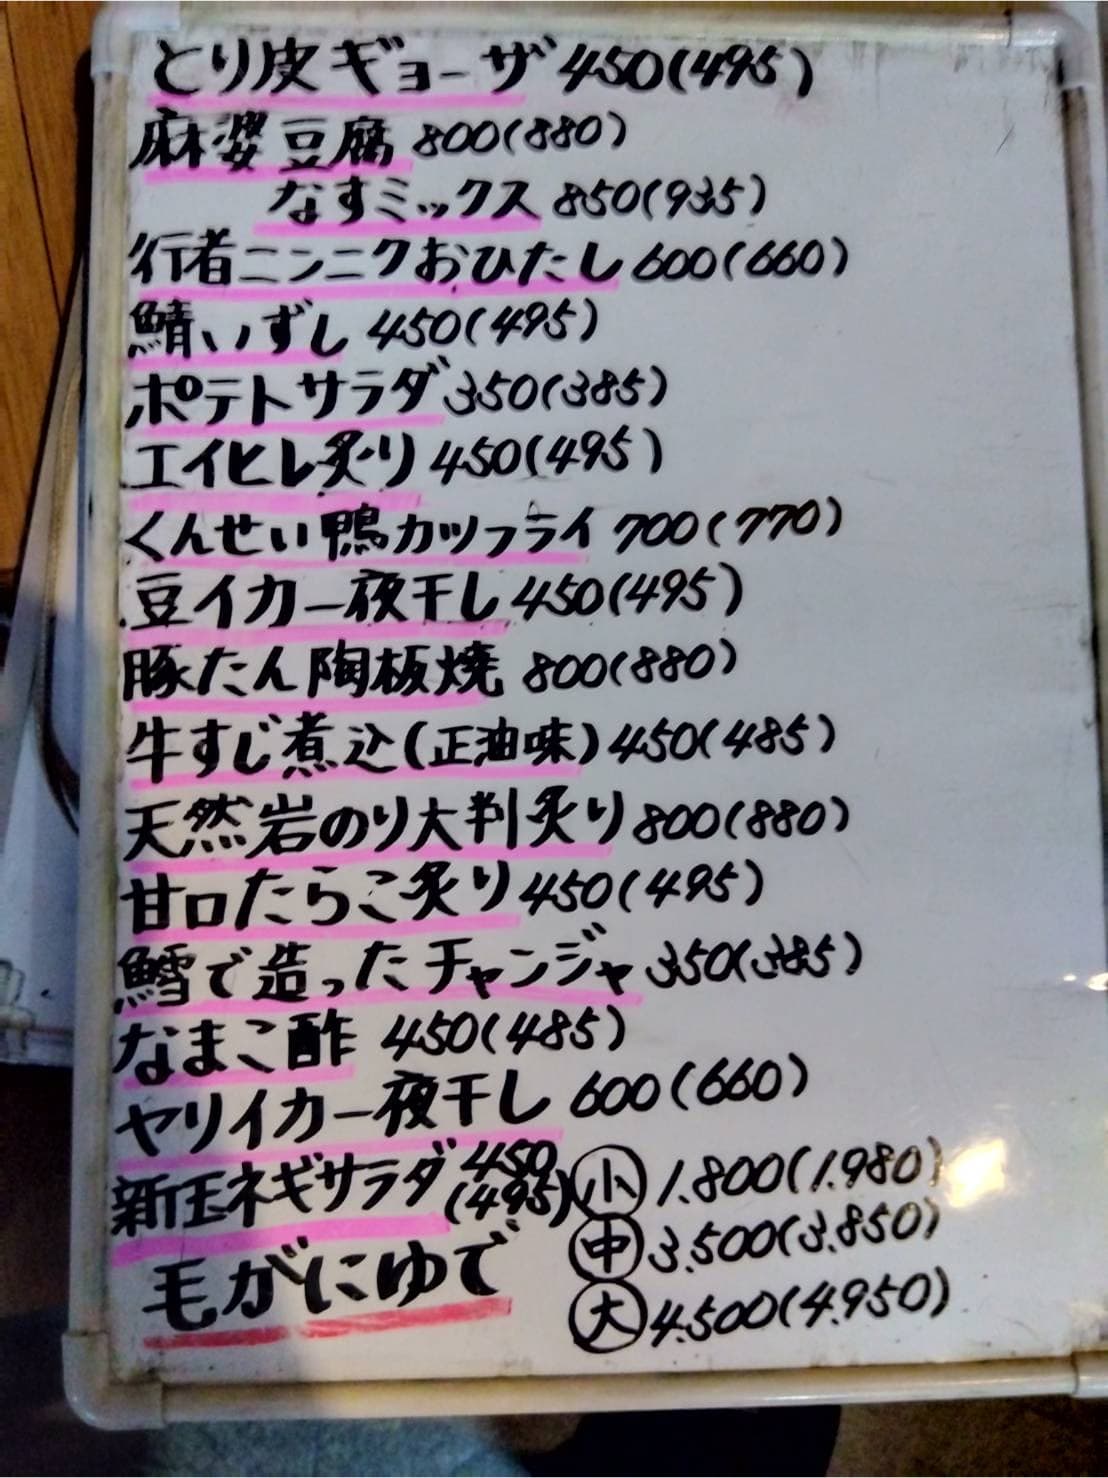 とり皮ギョーザ 450(495)
麻婆豆腐 800(880)
なすミックス 850(935)
行者ニンニクおひたし 600(660)
鯖いずし 450(495)
ポテトサラダ 350(385)
エイヒレ炙り 450(495)
くんせい鴨カツフライ 700(770)
豆イカ一夜干し 450(495)
豚たん陶板焼 800(880)
牛すじ煮込(正油味) 450(485)
天然岩のり大判炙り 800(880)
甘口たらこ炙り 450(495)
鱈で造ったチャンジャ 350(385)
なまこ酢 450(485)
ヤリイカ一夜干し 600(660)
新玉ネギサラダ 450(495)
毛がにゆで
小 1.800(1.980)
中 3.500(3.850)
大 4.500(4.950)